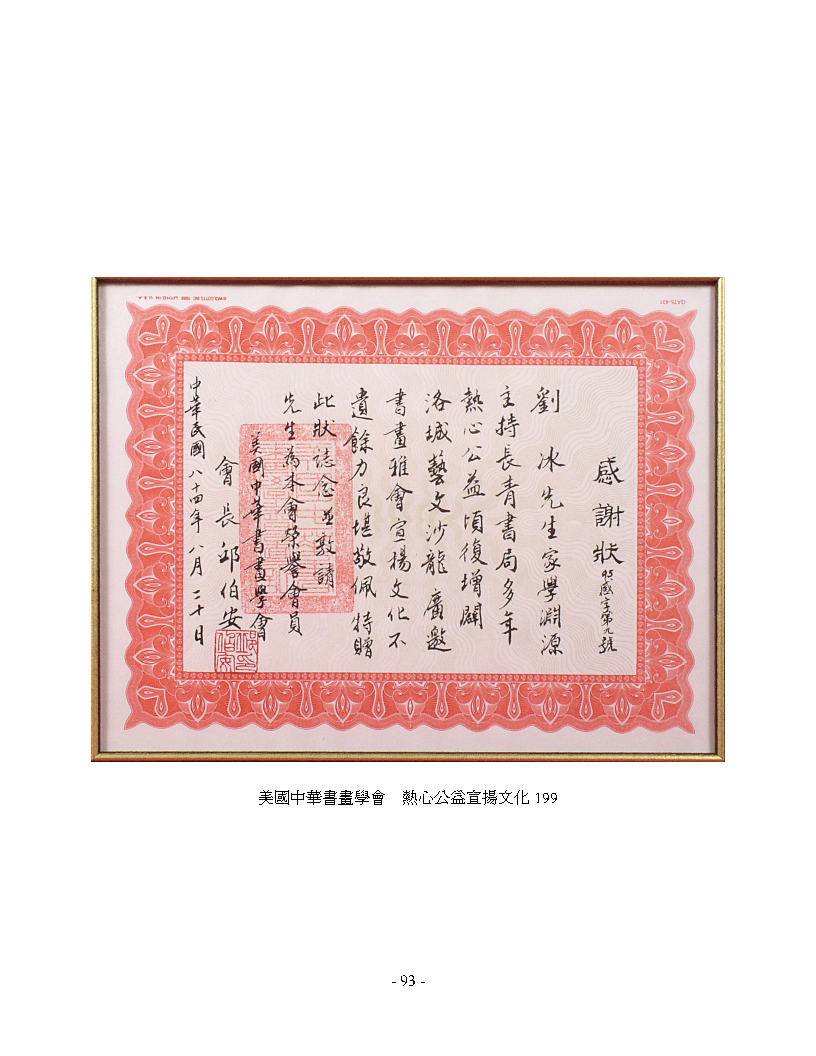 感謝狀 95感字第九號
劉 冰先生家學淵源
主持長青書局多年
熱心公益頃復增闢
洛城藝文沙龍廣邀
書畫雅會宣楊文化不
遺餘力良堪敬佩特贈
此狀誌念並敦請
先生為本會榮譽會員
美國中華書畫學會
會長邱伯安
中華民國八十四年八月二十日
美國中華書畫學會 熱心公益宣揚文化 199
- 93 -